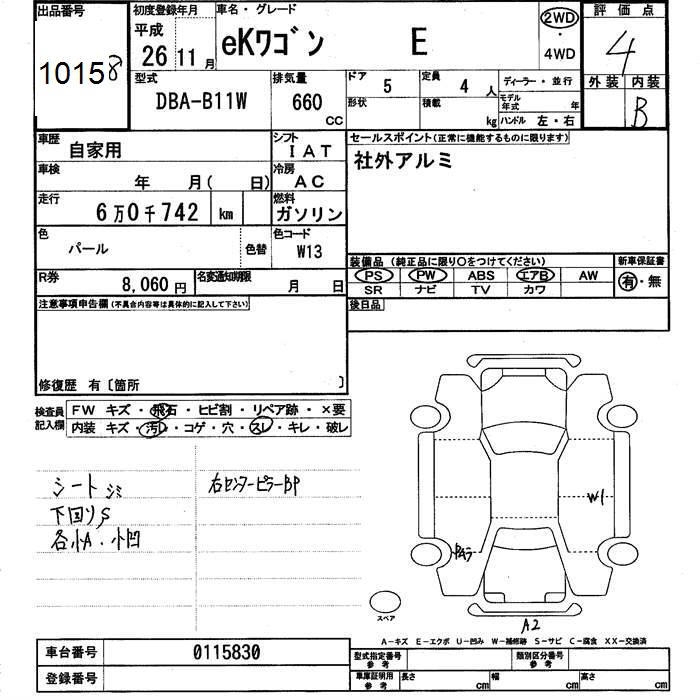 出品番号 10158
初度登録年月 平成 26 11月
車名・グレード eKワゴン E
2WD・4WD
評価点 4
外装 内装 B
型式 DBA-B11W
排気量 660 CC
ドア 5
形状
定員 4 人
積載 kg
ディーラー・並行
モデル年式 年
ハンドル 左・右
車歴 自家用
シフト IAT
車検 年 月( 日)
冷房 AC
走行 6万0千742 km
燃料 ガソリン
色 パール
色替
色コード W13
R券 8,060円
名変通知期限 月 日
セールスポイント(正常に機能するものに限ります)
社外アルミ
装備品 (純正品に限り○をつけてください)
PS PW ABS エアB AW
SR ナビ TV カワ
新車保証書 有・無
後日品
注意事項申告欄(不具合内容等は具体的に記入して下さい)
修復歴 有〔箇所 〕
検査員記入欄
FW キズ・飛石・ヒビ割・リペア跡・×要
内装 キズ・汚レ・コゲ・穴・スレ・キレ・破レ
シートシミ
下回りS
各小A・小凹
右センターピラーBP
W1
A2
スペア
A-キズ E-エクボ U-凹み W-補修跡 S-サビ C-腐食 XX-交換済
車台番号 0115830
登録番号
型式指定番号 参考
類別区分番号 参考
車庫証明用 参考 長さ cm 幅 cm 高さ cm